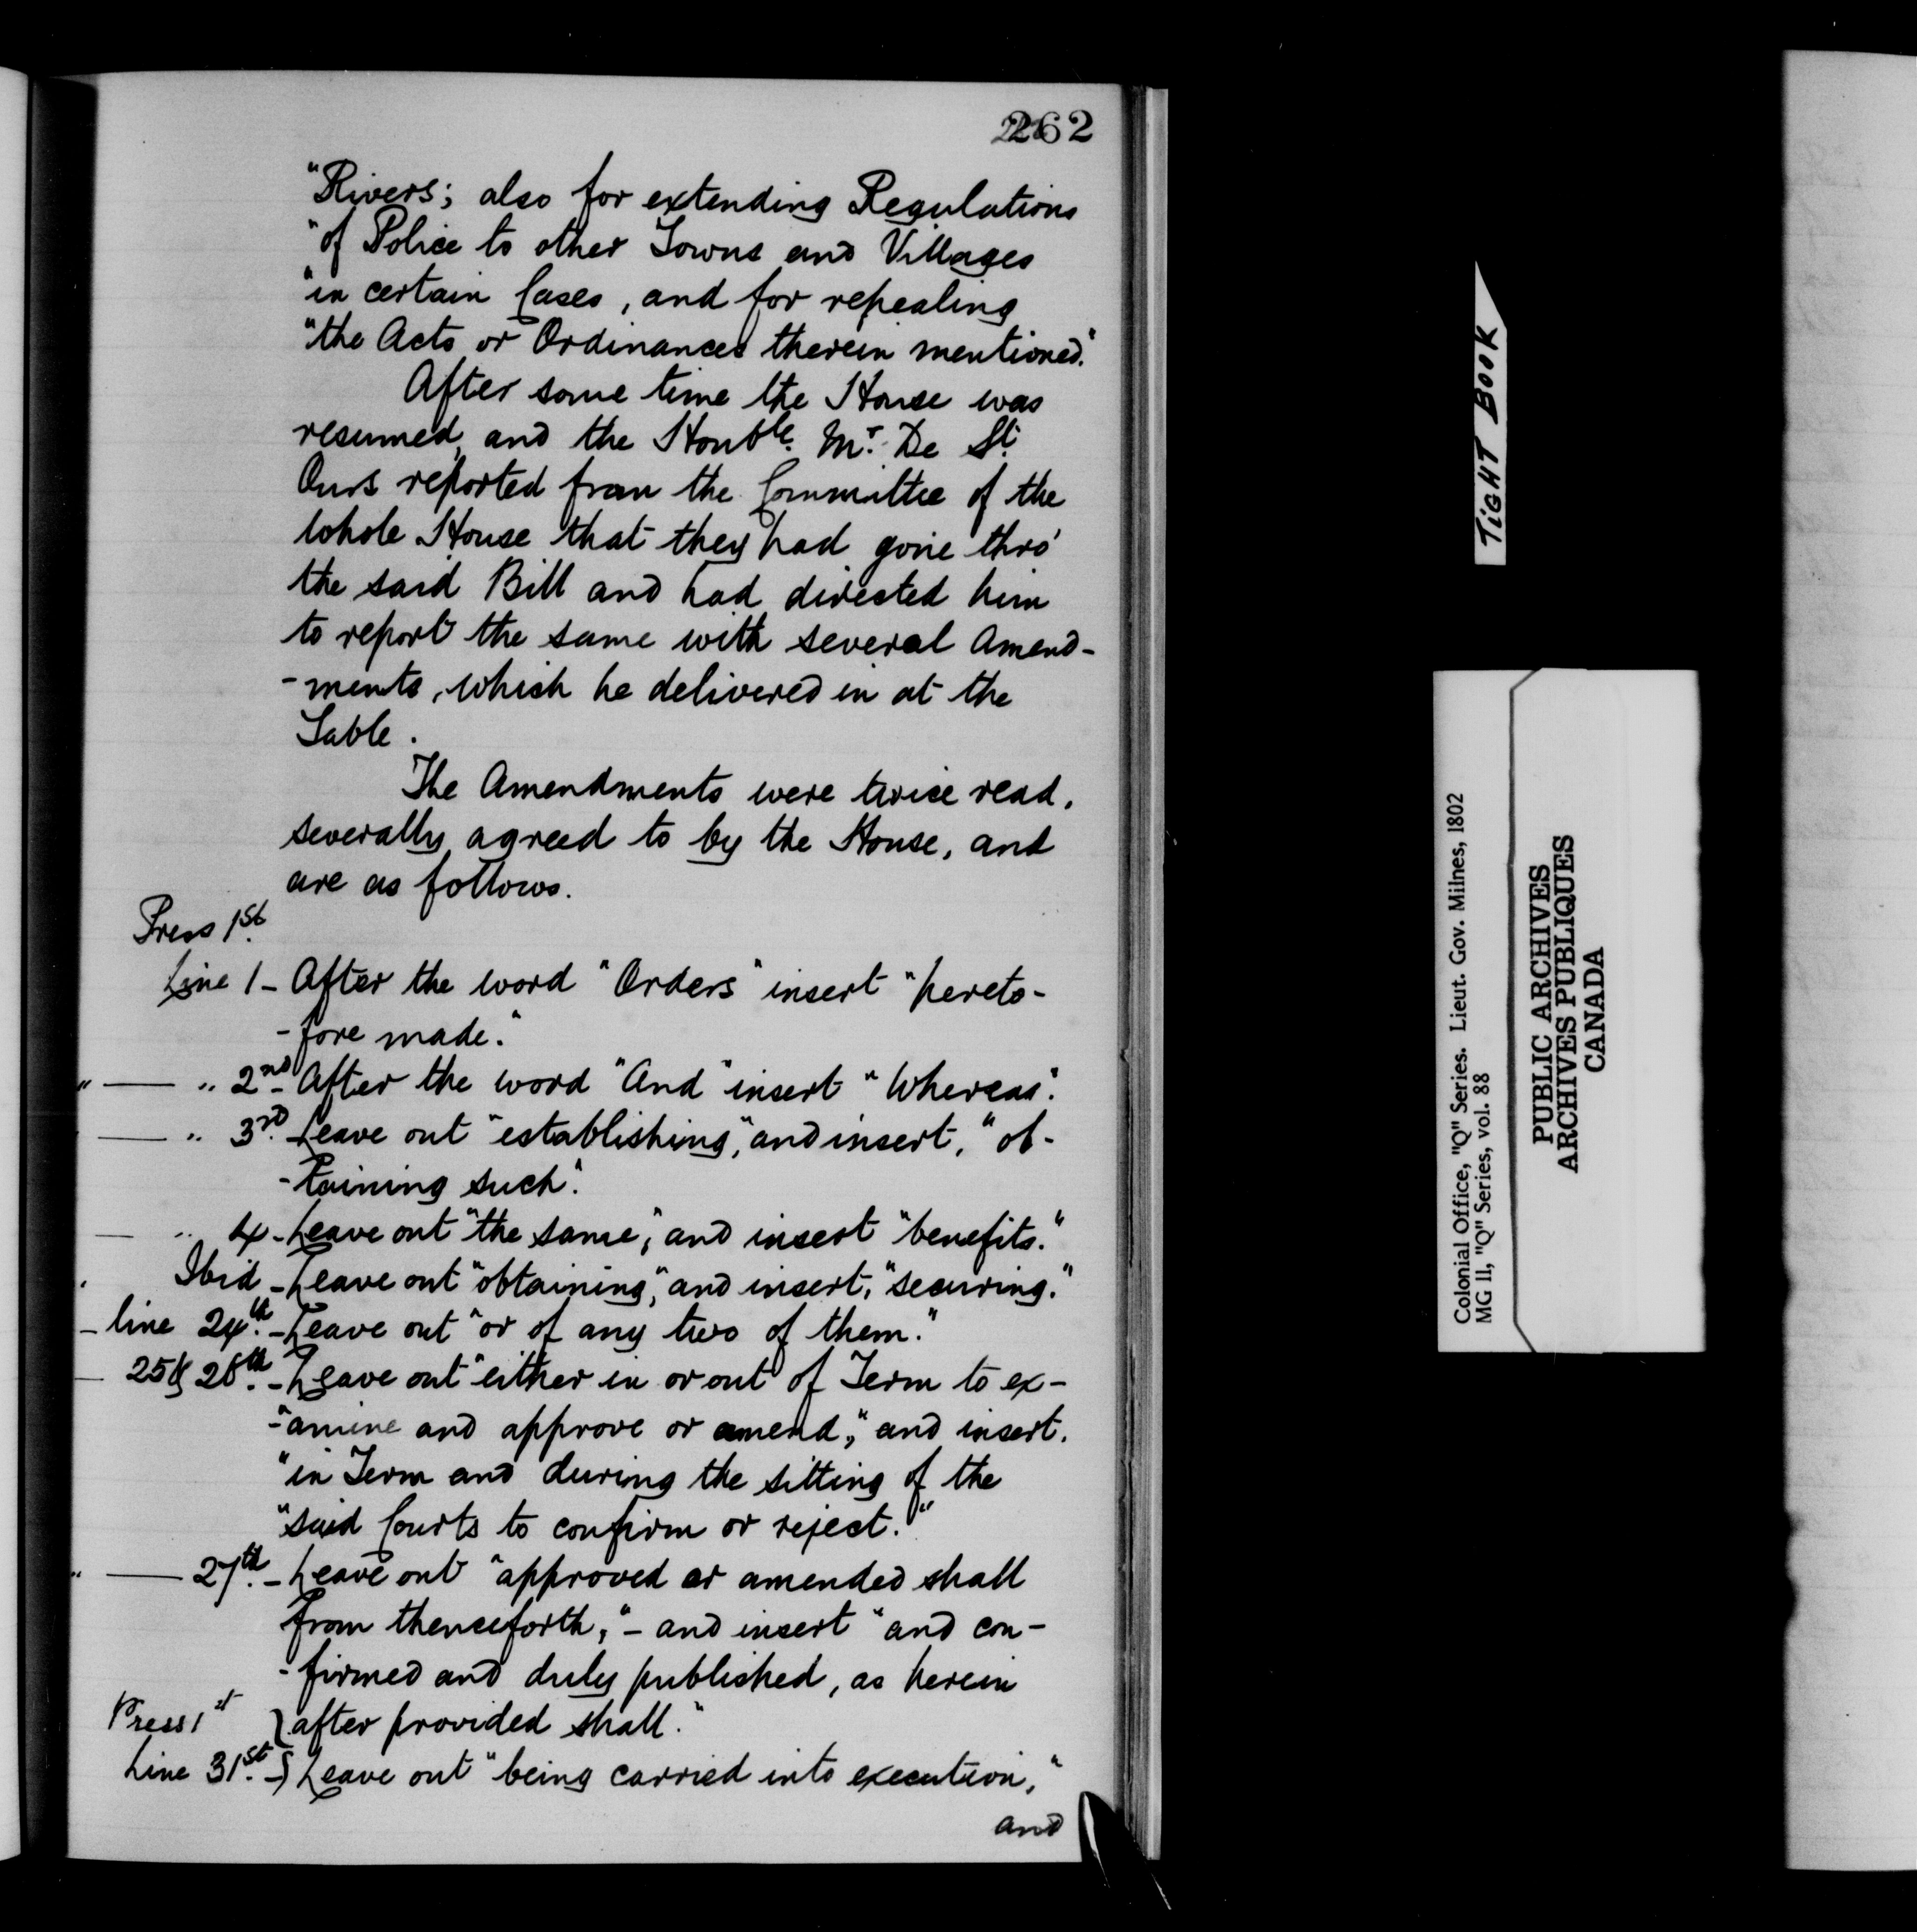 262
"Rivers; also for extending Regulations
"of Police to other Towns and Villages
"in certain Cases, and for repealing
"the Acts or Ordinances therein mentioned."
After some time the House was
resumed, and the Honble. Mr. De St.
Ours reported from the Committee of the
whole House that they had gone thro'
the said Bill and had directed him
to report the same with several Amend-
-ments, which he delivered in at the
Table.
The Amendments were twice read,
severally agreed to by the House, and
are as follows.
Press 1st.
Line 1 - After the word "Orders" insert "hereto-
-fore made."
" — " 2nd - After the word "And" insert "Whereas".
— " 3rd. - Leave out "establishing," and insert, "ob-
-taining such".
— " 4 - Leave out "the same", and insert "benefits."
Ibid - Leave out "obtaining", and insert, "securing."
- line 24th. - Leave out "or of any two of them."
— 25 & 26th. - Leave out "either in or out of Term to ex-
-"amine and approve or amend," and insert.
"in Term and during the sitting of the
"said Courts to confirm or reject."
" — 27th. - Leave out "approved or amended shall
from thenceforth," - and insert "and con-
-firmed and duly published, as herein
Press 1st } after provided shall."
Line 31st. - } Leave out "being carried into execution,"
and
TIGHT BOOK
Colonial Office, "Q" Series. Lieut. Gov. Milnes, 1802
MG 11, "Q" Series, vol. 88
PUBLIC ARCHIVES
ARCHIVES PUBLIQUES
CANADA